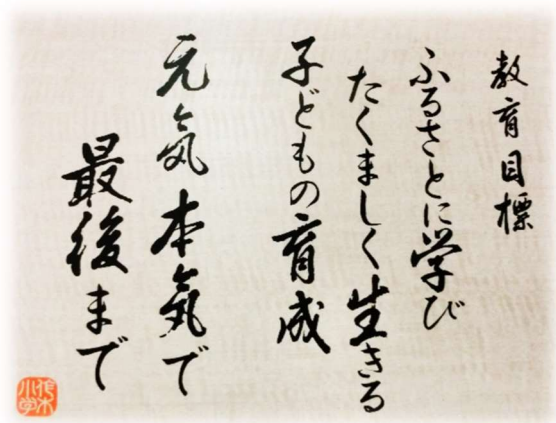 教育目標
ふるさとに学び
たくましく生きる
子どもの育成
元気 本気で
最後まで
作木
小学